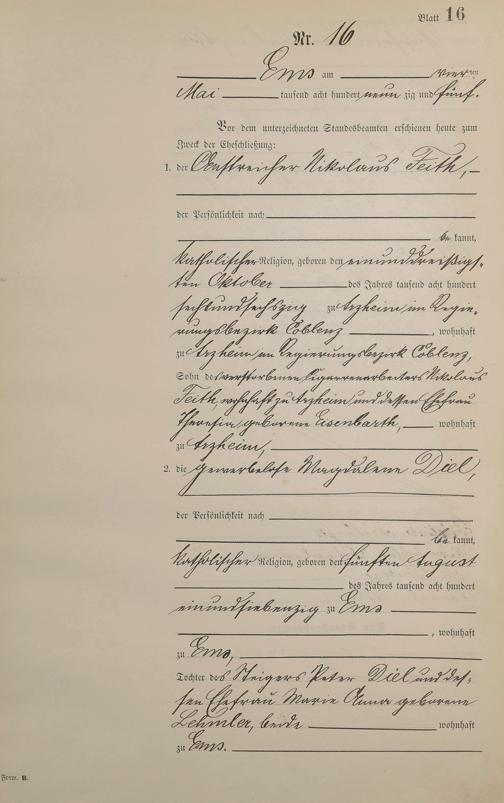 Blatt 16
Nr. 16
Ems am vierten
Mai tausend acht hundert neun zig und fünf.
Vor dem unterzeichneten Standesbeamten erschienen heute zum
Zweck der Eheschließung:
1. der Anstreicher Nikolaus Feith,
der Persönlichkeit nach
be kannt,
katholischer Religion, geboren den einunddreißigs-
ten Oktober des Jahres tausend acht hundert
sechsundsechszig zu Arzheim im Regie-
rungsbezirk Coblenz, wohnhaft
zu Arzheim im Regierungsbezirk Coblenz,
Sohn des verstorbenen Cigarrenarbeiters Nikolaus
Feith, wohnhaft zu Arzheim, und dessen Ehefrau
Theresia, geborene Eisenbarth, wohnhaft
zu Arzheim,
2. die gewerbelose Magdalene Diel,
der Persönlichkeit nach
be kannt,
katholischer Religion, geboren den fünften August
des Jahres tausend acht hundert
einundsiebenzig zu Ems
, wohnhaft
zu Ems,
Tochter des Steigers Peter Diel und des-
sen Ehefrau Marie Anna geborene
Lehmler, beide wohnhaft
zu Ems.
Form. B.